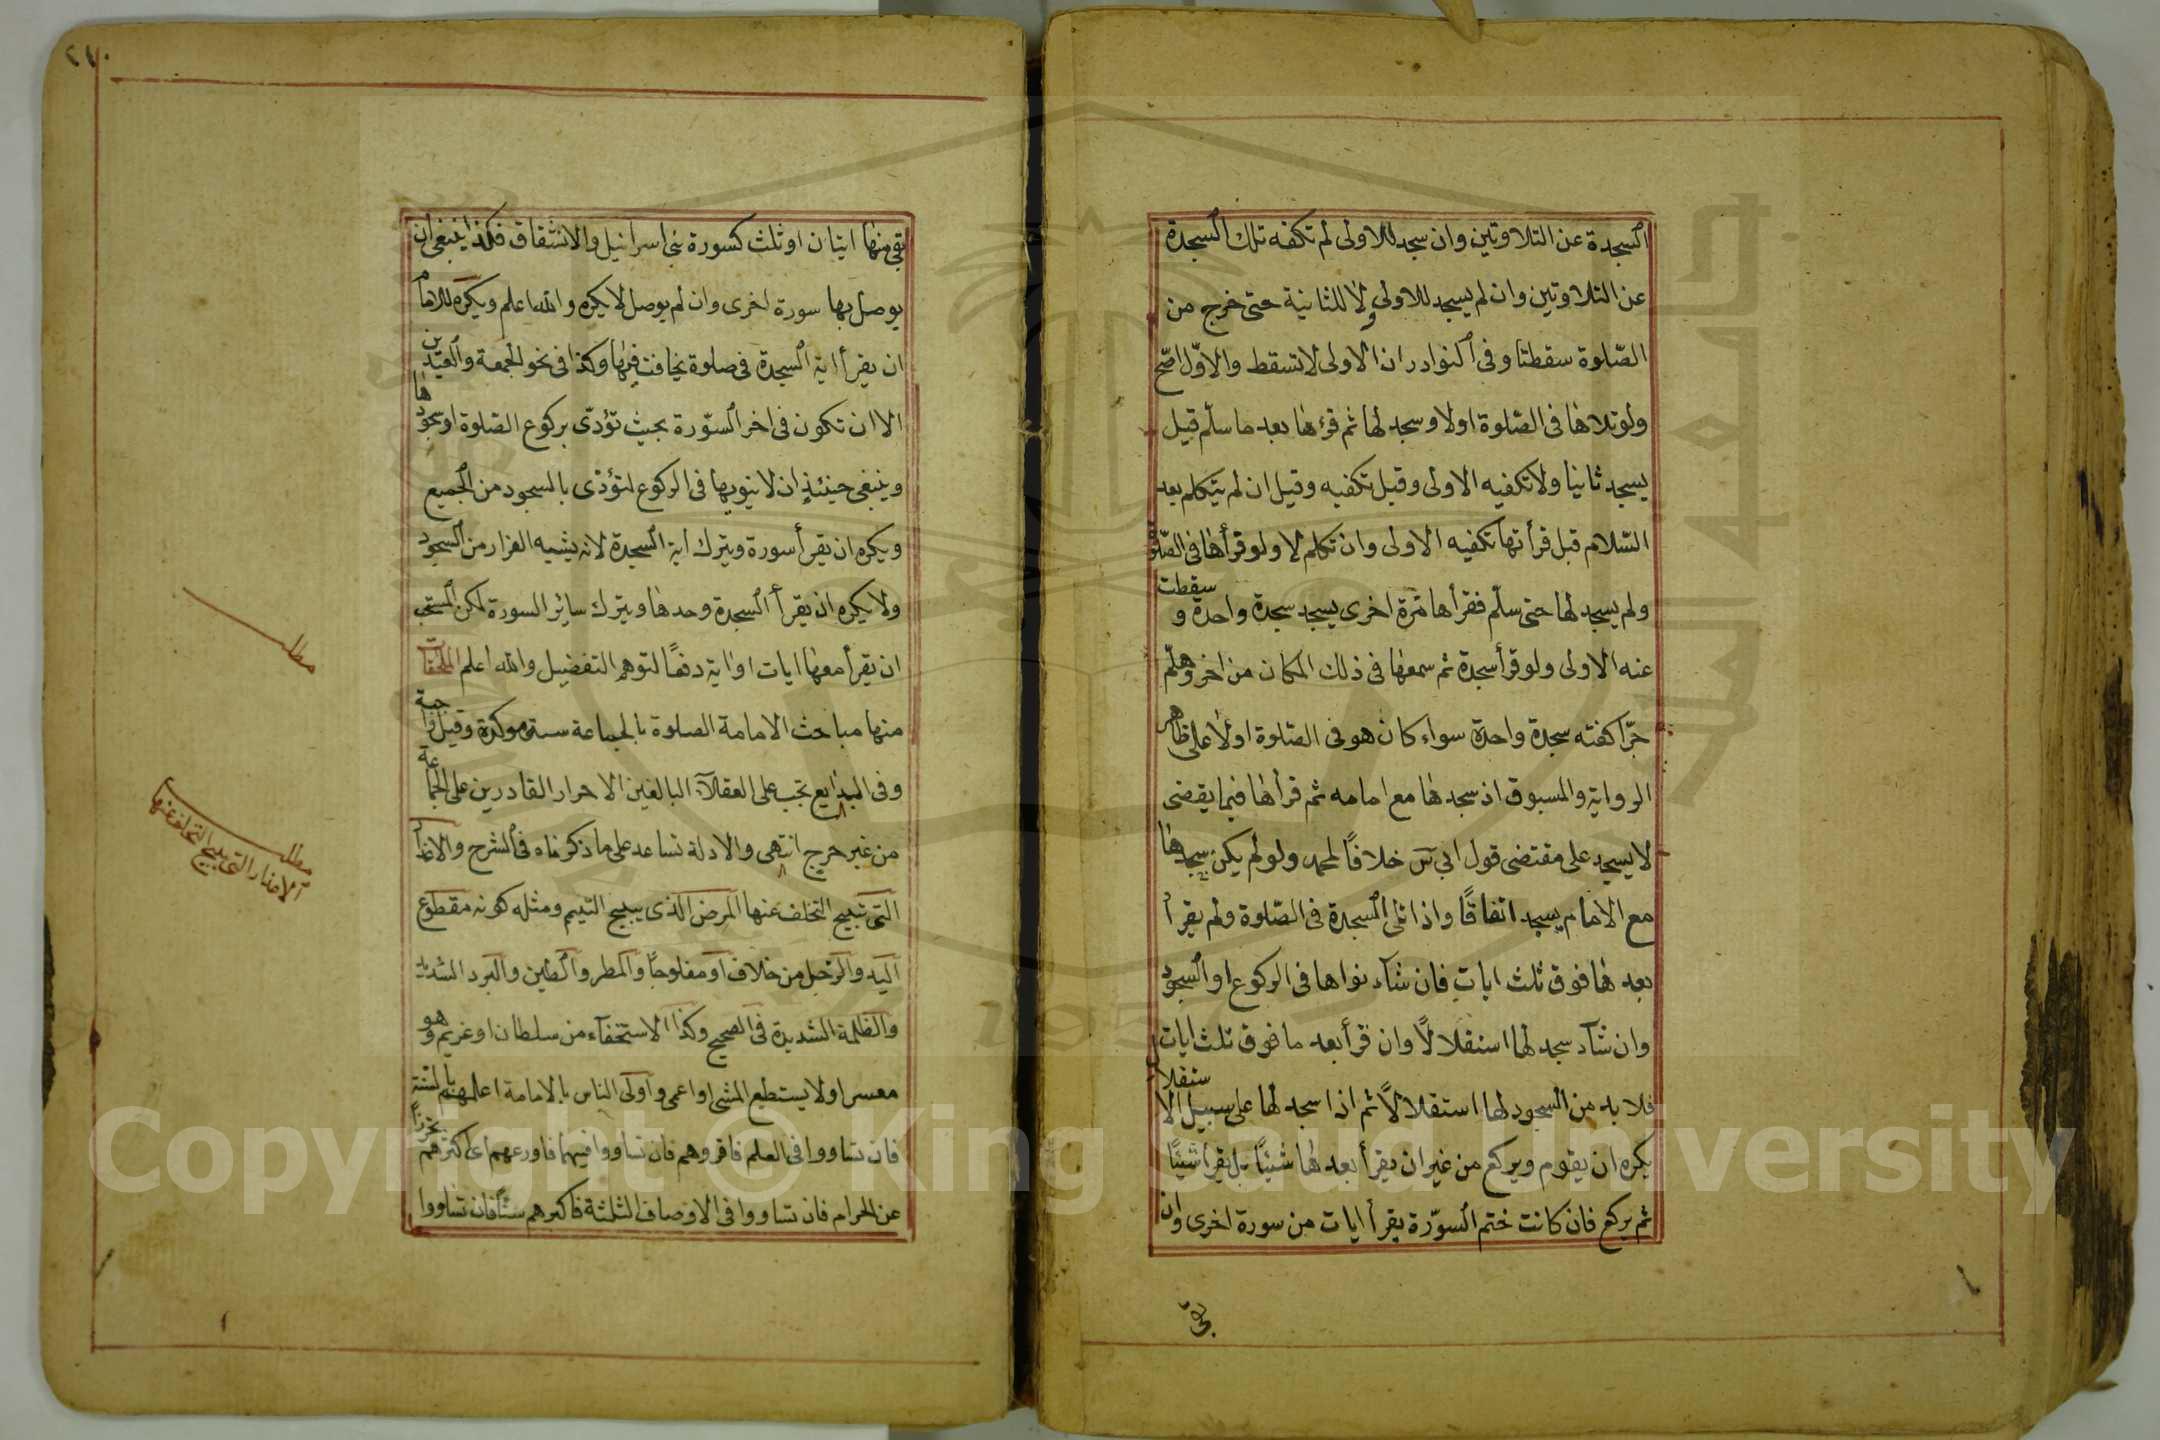 السجدة عن التلاوتين وان سجد للاولى لم تكفه تلك السجدة
عن التلاوتين وان لم يسجد للاولى ولا للثانية حتى خرج من
الصّلوة سقطتا وفى النوادر ان الاولى لاتسقط والاوّل اصّح
ولو تلاها فى الصّلوة اولا وسجد لها ثم قرءها بعد ما سلّم قيل
يسجد ثانيا ولا تكفيه الاولى وقيل تكفيه وقيل ان لم يتكلم بعد
السّلام قبل قرأتها تكفيه الاولى وان تكلم لا ولو قرأها فى الصّلوة
ولم يسجد لها حتى سلّم فقرأها مرّة اخرى يسجد سجدة واحدة و سقطت
عنه الاولى ولو قرأ سجدة ثم سمعها فى ذلك المكان من اخر وهلّم
جرّا كفته سجدة واحدة سواء كان هو فى الصّلوة اولا على ظاهر
الرواية والمسبوق اذ سجدها مع امامه ثم قرأها فيما يقضى
لا يسجد على مقتضى قول ابى س خلافًا لمحمد ولو لم يكن سجدها
مع الامام يسجد اتفاقًا واذا تلى السجدة فى الصّلوة ولم يقرأ
بعدها فوق ثلث ايات فان شآء نواها فى الركوع او السجود
وان شآء سجد لها استقلالًا وان قرأ بعد ما فوق ثلث ايات
فلا بد من السجود لها استقلالًا ثم اذا سجد لها على سبيل الاستقلال
يكره ان يقوم ويركع من غير ان يقرأ بعدها شيئًا بل يقرأ شيئًا
ثم يركع فان كانت ختم السوّرة يقرأ ايات من سورة اخرى وان
بقى
٢١٠
بقى منها ايتان او ثلث كسورة بنى اسرائيل والانشقاق فكذا ينبغى ان
يوصل بها سورة اخرى وان لم يوصل لا يكره والله اعلم ويكره للامام
ان يقرأ اية السجدة فى صلوة يخافت فيها وكذا فى نحو الجمعة والعيدين
الا ان تكون فى اخر السّورة بحيث تؤدّى بركوع الصّلوة او سجودها
وينبغى حينئذٍ ان لا ينويها فى الركوع لتؤدّى بالسجود من الجميع
ويكره ان يقرأ سورة ويترك اية السجدة لانه يشبه الفرار من السجود
ولا يكره ان يقرأ السجدة وحدها ويترك سائر السورة لكن المستحب
ان يقرأ معها ايات او اية دفعًا لتوهم التفضيل والله اعلم الملحقات
منها مباحث الامامة الصلوة بالجماعة سنة موكدة وقيل واجبة
وفى البدايع تجب على العقلآء البالغين الاحرار القادرين على الجماعة
من غير حرج انتهى والادلة تساعد على ما ذكرناه فى الشرح والاعذار
التى تبيح التخلف عنها المرض الذى يبيح التيمم ومثله كونه مقطوع
اليد والرجل من خلاف او مفلوجًا والمطر والطين والبرد الشديد
والظلمة الشديدة فى الصحيح وكذا الاستخفآء من سلطان او غريم وهو
معسر او لا يستطيع المشى او اعمى واولى الناس بالامامة اعلمهم بالسنة
فان تساووا فى العلم فاقروهم فان تساووا فيهما فاورعهم اى اكثرهم تحرزًا
عن الحرام فان تساووا فى الاوصاف الثلثة فاكبرهم سنًّا فان تساووا
مطلب
مطلب
الاعذار التى تبيح التخلف عنها
Copyright © King Saud University